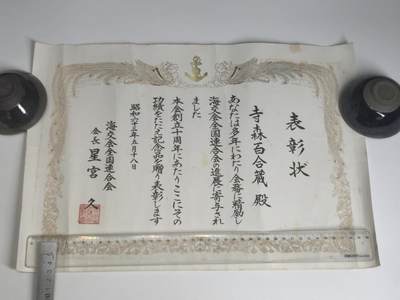 表彰状
寺森百合蔵 殿
あなたは多年にわたり会務に精励し
海交会全国連合会の進展に寄与され
ました
本会創立十周年にあたりここにその
功績をたたえ記念品を贈り表彰します
昭和六十三年五月十八日
海交会全国連合会
会長 星宮 久